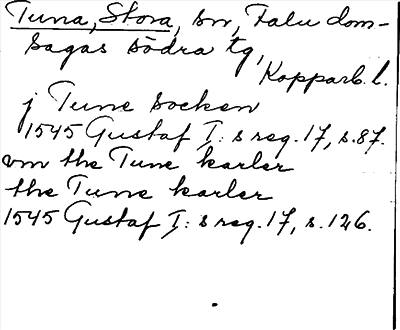 Tuna, Stora, sn, Falu dom-
sagas södra tg,
Kopparb. l.
j Tune socken
1545 Gustaf I:s reg. 17, s. 87.
vm the Tune karler
the Tune karler
1545 Gustaf I:s reg. 17, s. 126.